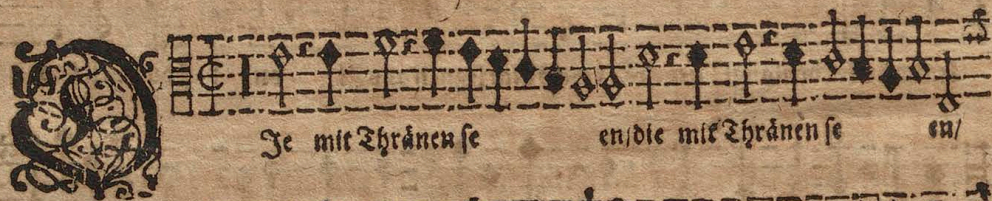 DJe mit Thränen se en/die mit Thränen se en/